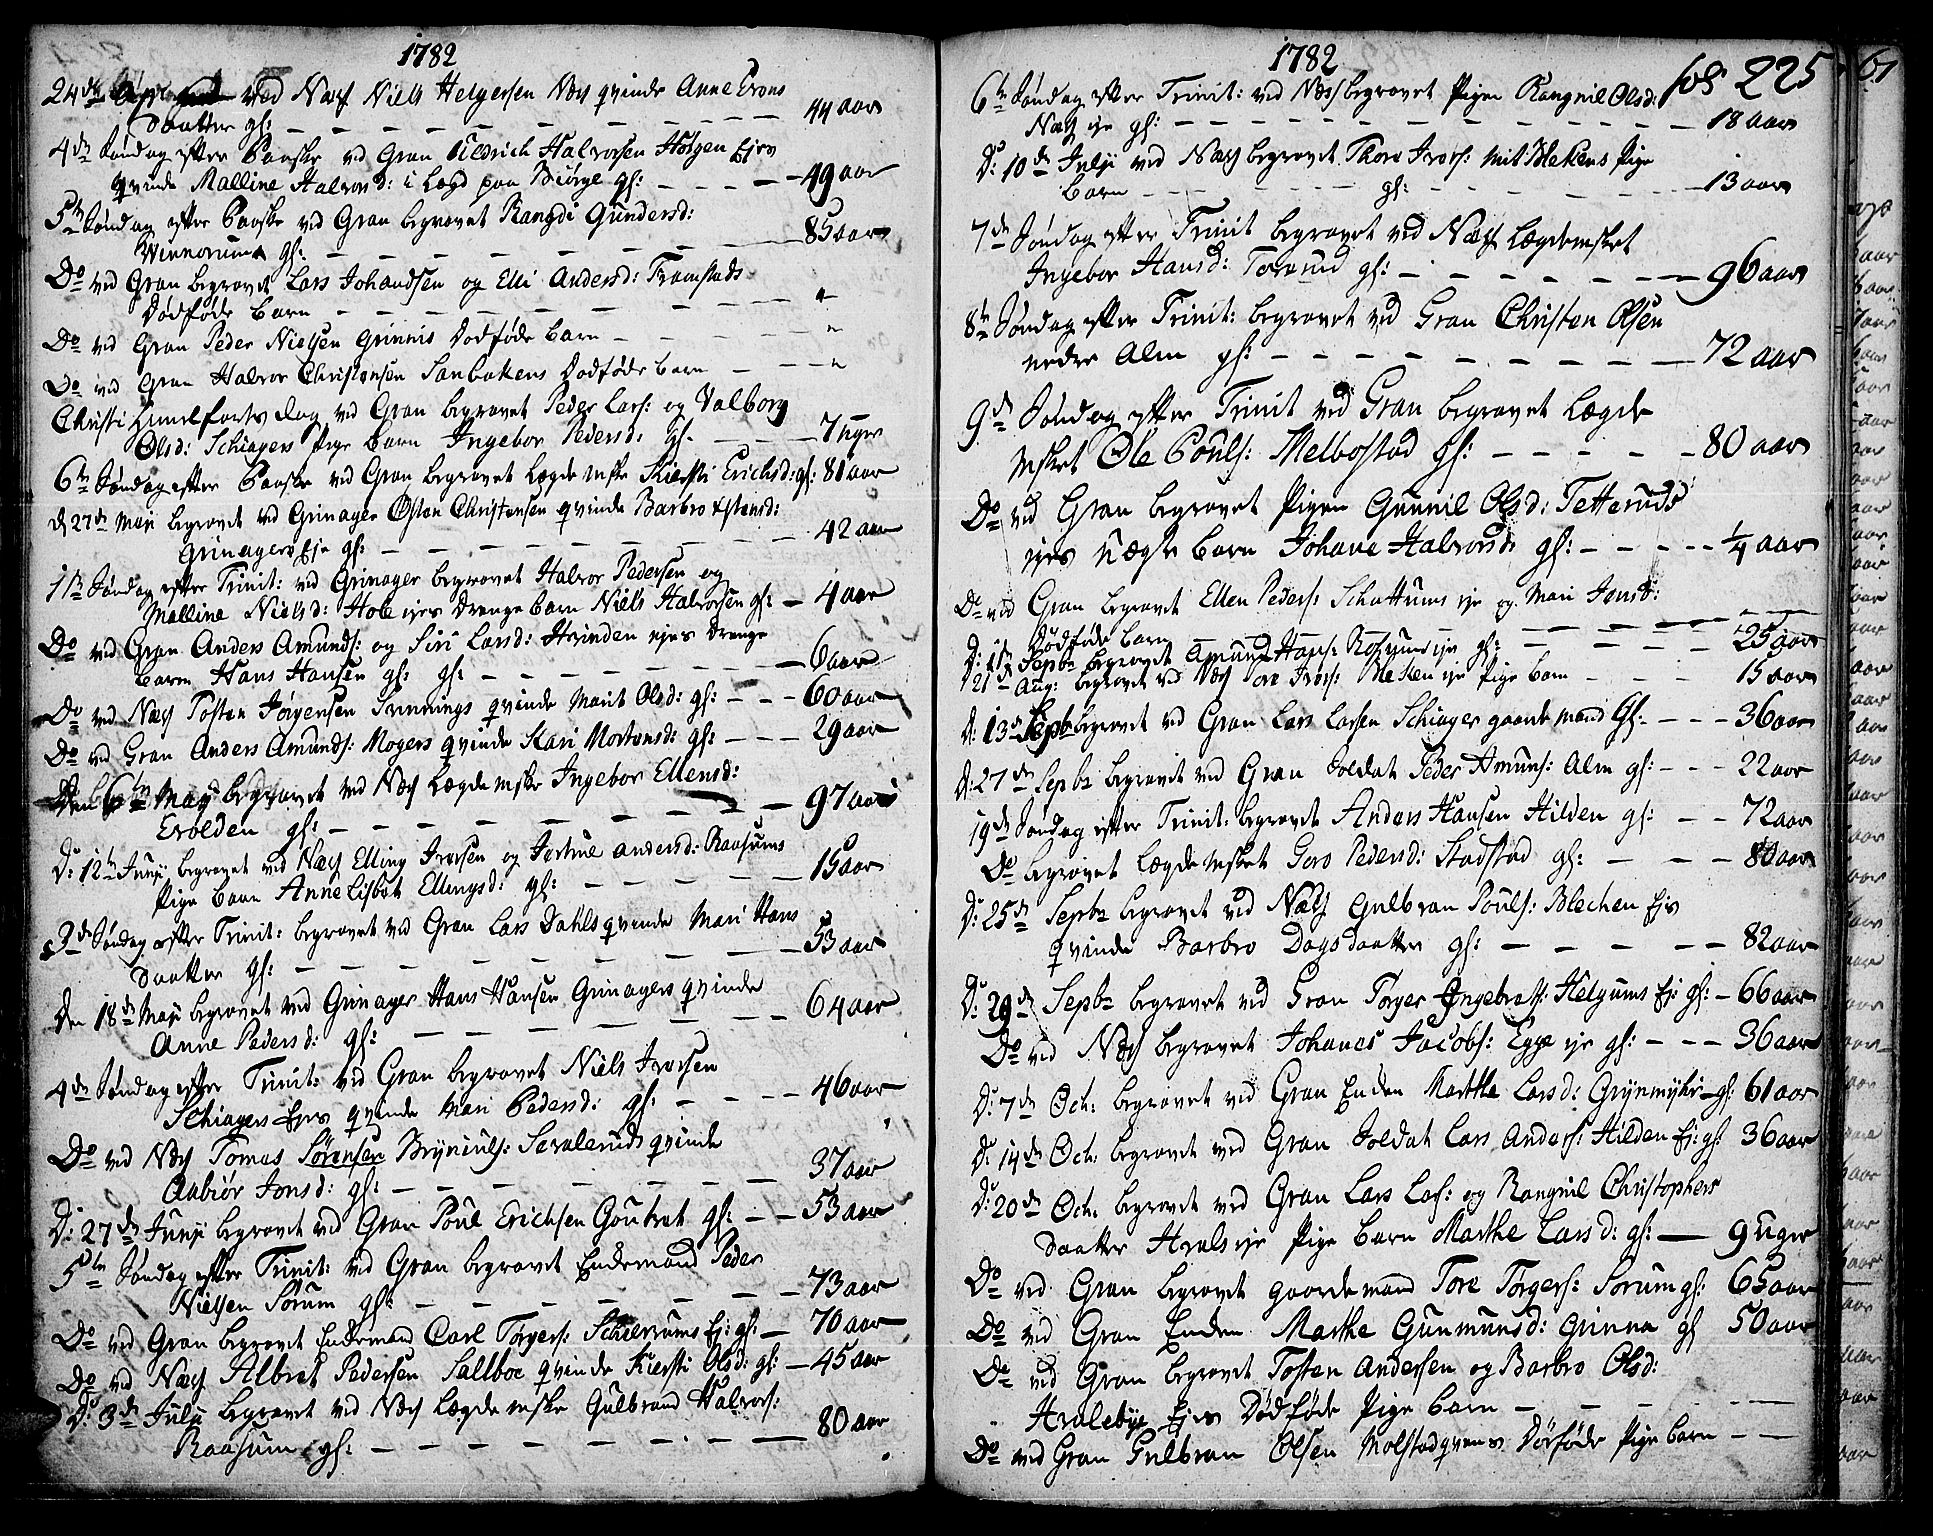 1782
24de ved Næss Niels Helgersen Næs qvinde Anne Evens
Daatter gl: 44 aar
4de Søndag efter Paaske ved Gran Uldrich Halvorsen Holgen Ejes
qvinde Malline Halvorsd: i Lægd paa Biørge gl: 49 aar
5te Søndag efter Paaske ved Gran begravet Rangdi Gundersd:
Winnorum gl: 85 aar
Do ved Gran begravet Lars Johandsen og Elli Andersd: Framstads
Dødføde barn "
Do ved Gran Peder Nielsen Grinnis Dødføde barn "
Do ved Gran Halvor Christensen Sanbakens Dødføde barn "
Christi Himelfarts dag ved Gran begravet Peder Lars: og Valborg
Olsd: Schiagers Pige barn Ingebor Pedersd: gl. 7 uger
6te Søndag efter Paaske ved Gran begravet Lægdemske Kiersti Erichsd: gl: 81 aar
d 27de Maji begravet ved Grinager Østen Christensen qvinde Barbro Estensd:
Grinagers Eje gl: 42 aar
1ste Søndag efter Trinit: ved Grinager begravet Halvor Pedersen og
Malline Nielsd: Hole ejes Drenge barn Niels Halvorsen gl: 4 aar
Do ved Gran Anders Amunds: og Siri Larsd: Hvinden ejes Drenge
barn Hans Hansen gl: gl: 6 aar
Do ved Næss Tosten Jørgensen qvinde Marit Olsd: gl: 60 aar
Do ved Gran Anders Amunds: Mogers qvinde Kari Mortensd: gl: 29 aar
Den 6te Maji begravet ved Næss Lægdemske Ingebor Ellensd:
Evolden gl: 97 aar
D: 12te Junji begravet ved Næss Elling Iversen og Jertrue Andersd: Raasums
Pige barn Anne Lisbet Ellingsd: gl: 15 aar
3de Søndag efter Trinit: begravet ved Gran Lars Dahls qvinde Mari Hans
Daatter gl: 53 aar
Den 18de Maji begravet ved Grinager Hans Hansen Grinagers qvinde
Anne Pedersd: gl: 64 aar
4de Søndag efter Trinit: ved Gran begravet Niels Iversen
Schiagers Ejes qvinde Mari Pedersd: gl: 46 aar
Do ved Næss Tomas Sørensen Bryniuls: qvinde
Aabiør Jonsd: gl: 37 aar
D: 27de Junji begravet ved Gran Poul Erichsen gl: 53 aar
5te Søndag efter Trinit: ved Gran begravet Enkemand Peder
Nielsen Sørum gl: 73 aar
Do ved Gran begravet Enkemand Carl Torgers: Schierrums Ej: gl: 70 aar
Do ved Næss Albret Pedersen Sallboe qvinde Kiersti Olsd: gl: 45 aar
D: 3de Julji begravet ved Næss Lægdemske Gulbrand Halvors:
Raasum gl: 80 aar
1782
fol 225
6te Søndag efter Trinit: ved Næss begravet Pigen Rangnil Olsd:
Næss eje gl: 18 aar
D: 10de Julji ved Næss begravet Thore Ivers: Pige
barn gl: 13 aar
7de Søndag efter Trinit begravet ved Næss Lægdemsket
Ingebor Hansd: gl: 96 aar
8te Søndag efter Trinit: begravet ved Gran Christen Olsen
nedre Alm gl: 72 aar
9de Søndag efter Trinit ved Gran begravet Lægde
msket Ole Pouls: Melbostad gl: 80 aar
Do ved Gran begravet Pigen Gunnil Olsd: Tetteruds
ejes Uægte barn Johane Halvorsd: gl: 1/4 aar
Do ved Gran begravet Ellen Peders: Schattums eje og Mari Jonsd:
Dødføde barn
D: 1ste Sepbr begravet Amund Hans: eje gl: 25 aar
D 21de Aug: begravet ved Næss Tore Ivers: eje Pige barn 15 aar
D: 13de Sepbr begravet ved Gran Lars Larsen Schiager gaardemand gl: 36 aar
D: 27de Sepbr begravet ved Gran Soldat Peder Amuns: Alm gl: 22 aar
19de Søndag efter Trinit: begravet Anders Hansen Hilden gl: 72 aar
Do begravet Lægdemsket Goro Pedersd: Stadstad gl: 80 aar
D: 25de Sepbr begravet ved Næss Gulbran Pouls: Blechen Ejes
qvinde Barbro Dagsdaatter gl: 82 aar
D: 29de Sepbr begravet ved Gran Torger Ingebrets: Helgums Ej: gl: 66 aar
Do ved Næss begravet Johanes Jacobs: Egge eje gl: 36 aar
D: 7de Oct: begravet ved Gran Enken Marthe Larsd: Grynmyhr gl: 61 aar
D: 14de Oct: begravet ved Gran Soldat Lars Anders: Hilden Ej: gl: 36 aar
D: 20de Oct: begravet ved Gran Lars Lars: og Rangnil Christophers
daatter Hvals eje Pige barn Marthe Larsd: gl: 9 uger
Do ved Gran begravet gaardemand Tore Torgers: Sorum gl: 65 aar
Do ved Gran Enken Marthe Gunmunsd: Grinna gl 50 aar
Do ved Gran begravet Tosten Andersen og Barbro Olsd:
Hvalebye Ejes Dødføde Pige barn
Do ved Gran Gulbran Olsen Molstadqverns Dødføde Pige barn